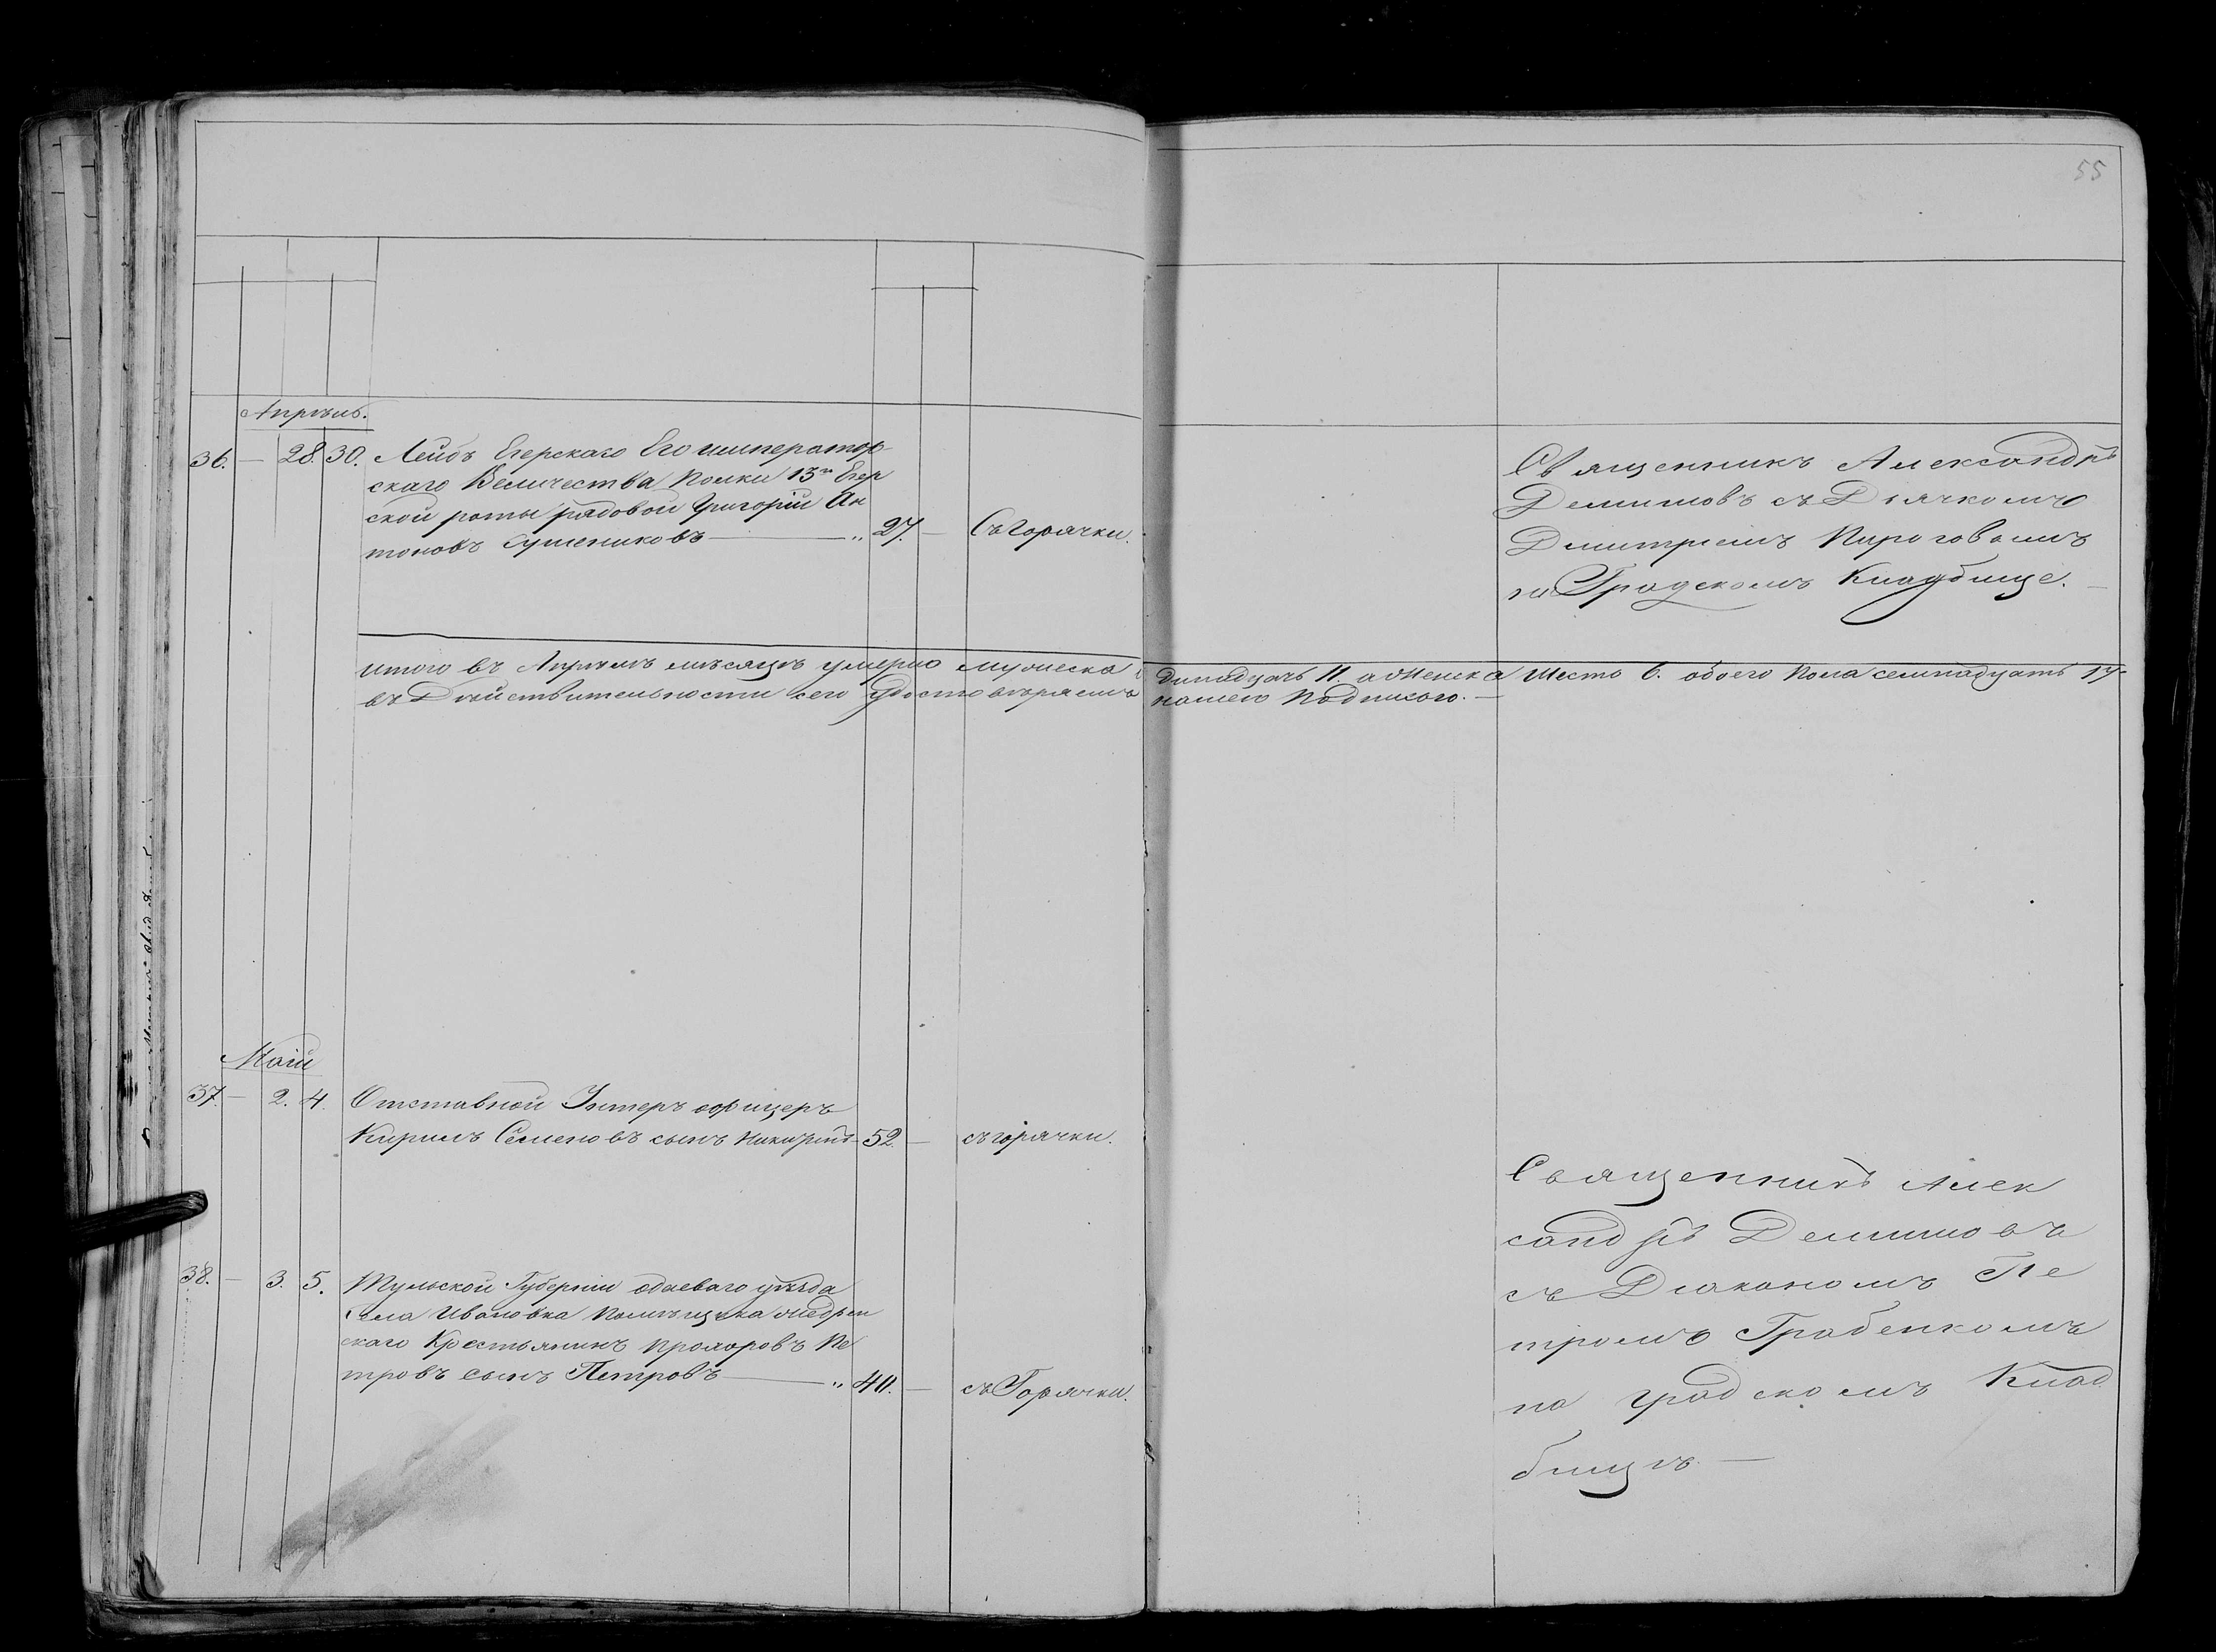 55
Апрѣль.
36. — 28. 30. Лейбъ Егерскаго Его император
скаго Величества Полка 13й Егер
ской роты рядовой Григорій Ан
тоновъ — „ 27. — Съ Горячки.
Священникъ Александръ
Демишовъ съ Дьячкомъ
Дмитріемъ Пироговымъ
на Градскомъ Кладбище. —
итого въ Апрѣлѣ мѣсяцѣ умерло мужеска одинадцать 11. а женска шесть 6. обоего пола семнадцать 17.
въ Дѣйствительности сего удостовѣряемъ нашею Подписью. —
Маій
37. — 2. 4. Отставной Унтеръ офицеръ
Кирилъ Семеновъ сынъ 52. — съ горячки.
38. — 3. 5. Тульской Губерніи одаеваго уѣзда
Села Ивановка Помѣщика
скаго Крестьянинъ Прохоровъ Пе
тровъ сынъ Петровъ — „ 40. — съ Горячки.
Священникъ Алек
сандръ Демишовъ
съ Дьякономъ Пе
тромъ Грабенкомъ
на градскомъ Клад
бищѣ. —